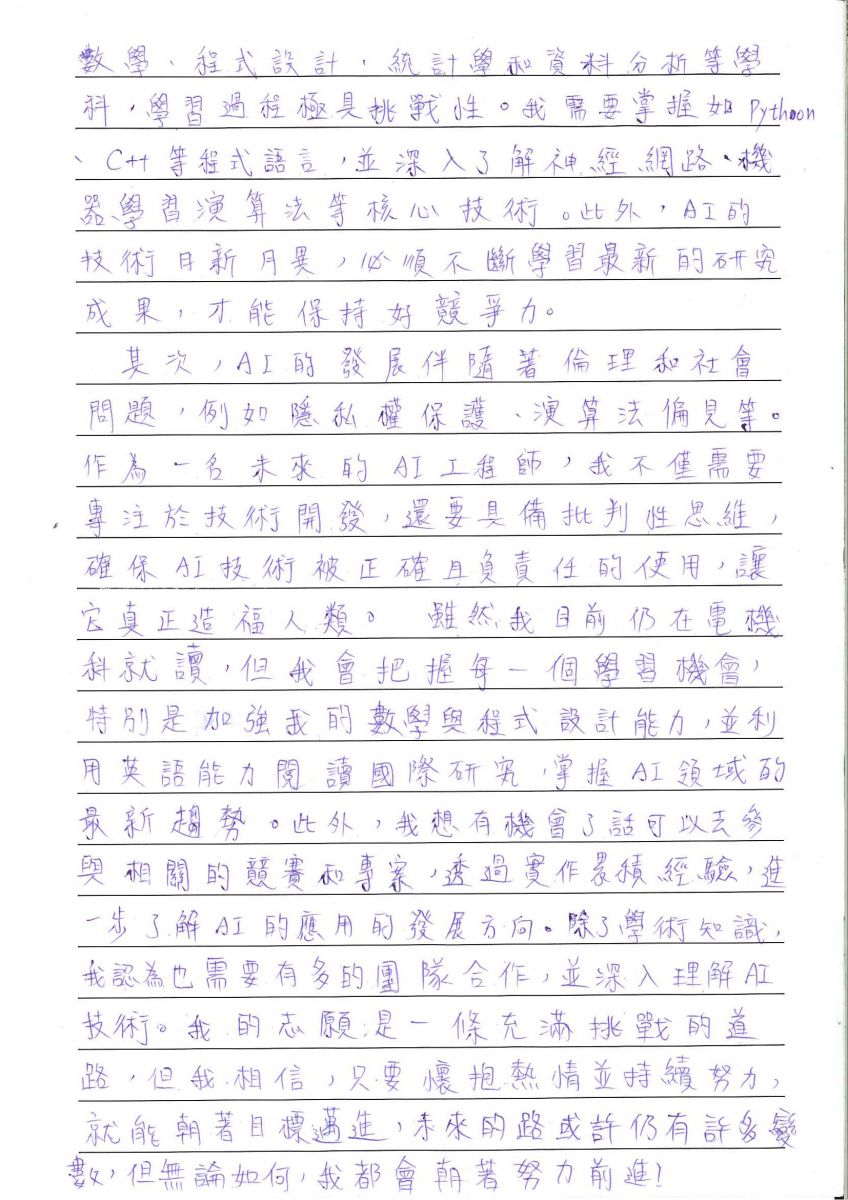 數學、程式設計，統計學和資料分析等學
科，學習過程極具挑戰性。我需要掌握如Pythoon
、C++等程式語言，並深入了解神經網路、機
器學習演算法等核心技術。此外，AI的
技術日新月異，必順不斷學習最新的研究
成果，才能保持好競爭力。
其次，AI的發展伴隨著倫理和社會
問題，例如隱私權保護、演算法偏見等。
作為一名未來的AI工程師，我不僅需要
專注於技術開發，還要具備批判性思維，
確保AI技術被正確且負責任的使用，讓
它真正造福人類。 雖然我目前仍在電機
科就讀，但我會把握每一個學習機會，
特別是加強我的數學與程式設計能力，並利
用英語能力閱讀國際研究，掌握AI領域的
最新趨勢。此外，我想有機會了話可以去參
與相關的競賽和專案，透過實作累積經驗，進
一步了解AI的應用的發展方向。除了學術知識，
我認為也需要有多的團隊合作，並深入理解AI
技術。我的志願是一條充滿挑戰的道
路，但我相信，只要懷抱熱情並持續努力，
就能朝著目標邁進，未來的路或許仍有許多變
數，但無論如何，我都會朝著努力前進！